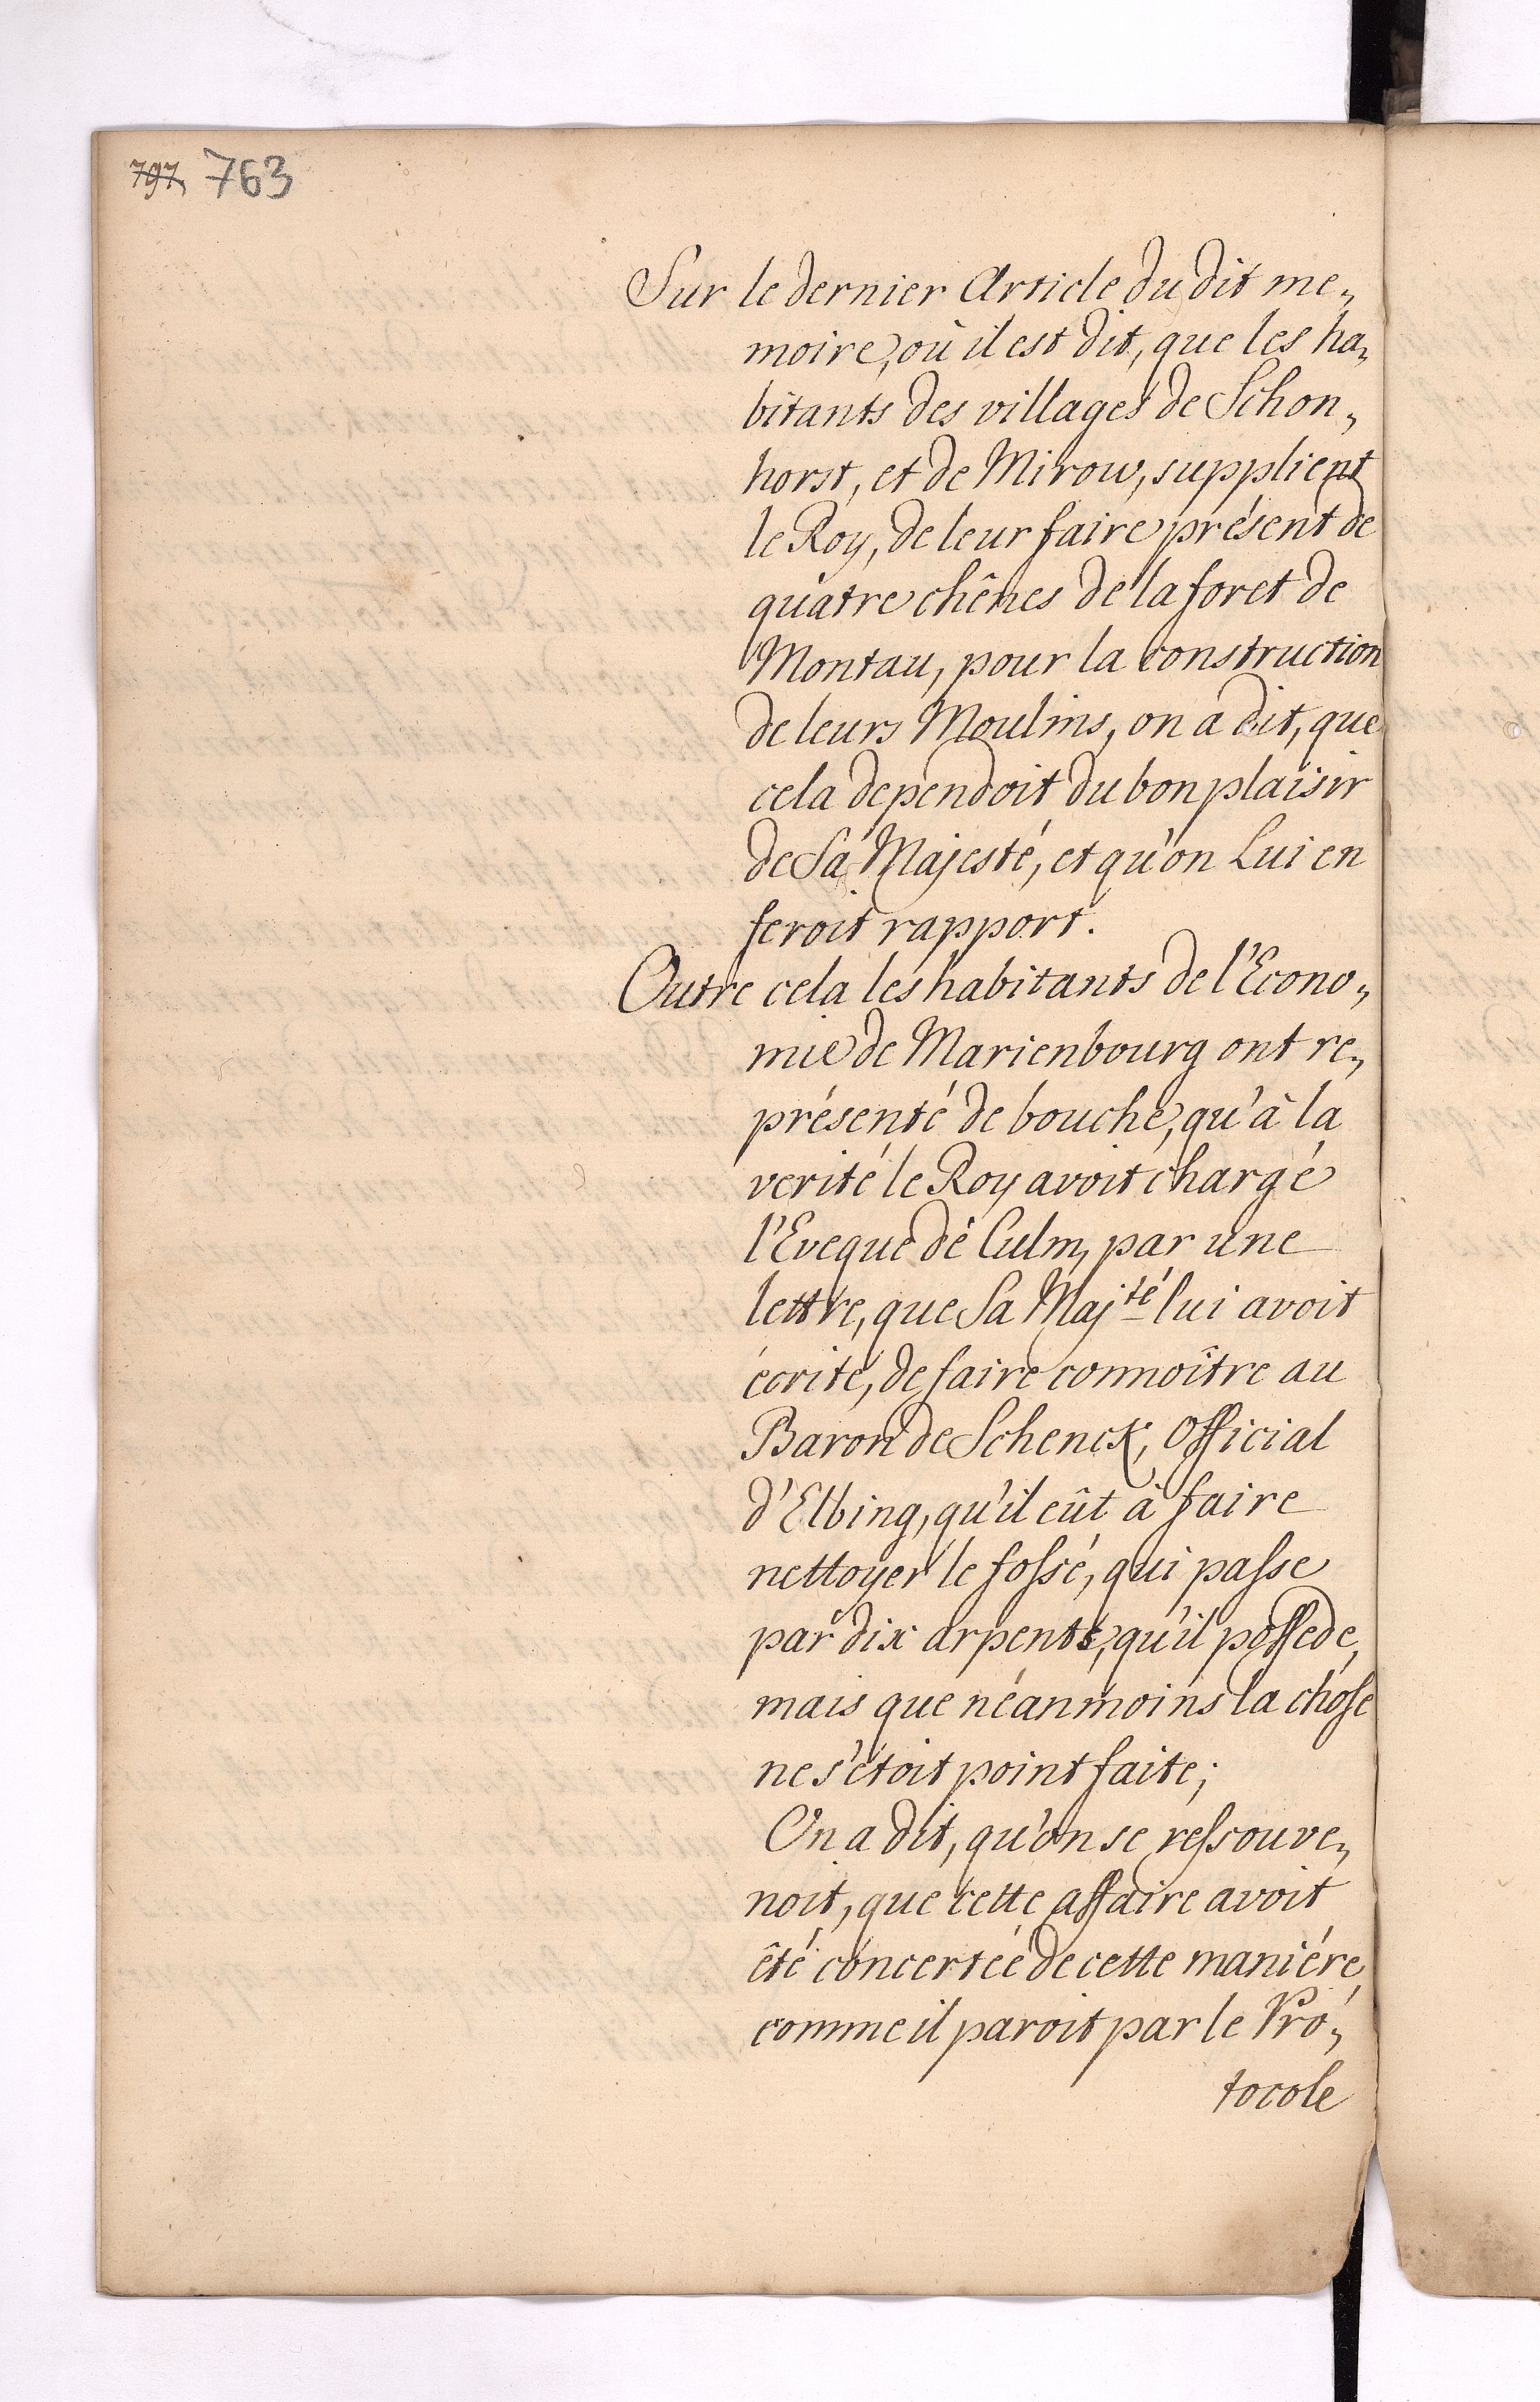 797, 763
Sur le dernier Article du dit me„
moire, où il est dit, que les ha„
bitants des villages de Schon„
horst, et de Mirow, supplient
le Roy, de leur faire présent de
quatre chênes de la foret de
Montau, pour la construction
de leurs Moulins, on a dit, que
cela dependoit du bon plaisir
de Sa Majesté, et qu'on Lui en
feroit rapport.
Outre cela les habitants de l'Econo„
mie de Marienbourg ont re„
présenté de bouche, qu'à la
verité le Roy avoit chargé
l'Eveque de Culm, par une
lettre, que Sa Maj.té lui avoit
écrite, de faire connoître au
Baron de Schenck, Official
d'Elbing, qu'il eût à faire
nettoyer le fossé, qui passe
par dix arpents, qu'il possede,
mais que néanmoins la chose
ne s'étoit point faite;
On a dit, qu'on se ressouve„
noit, que cette affaire avoit
êté concertée de cette maniére,
comme il paroit par le Pro„
tocole